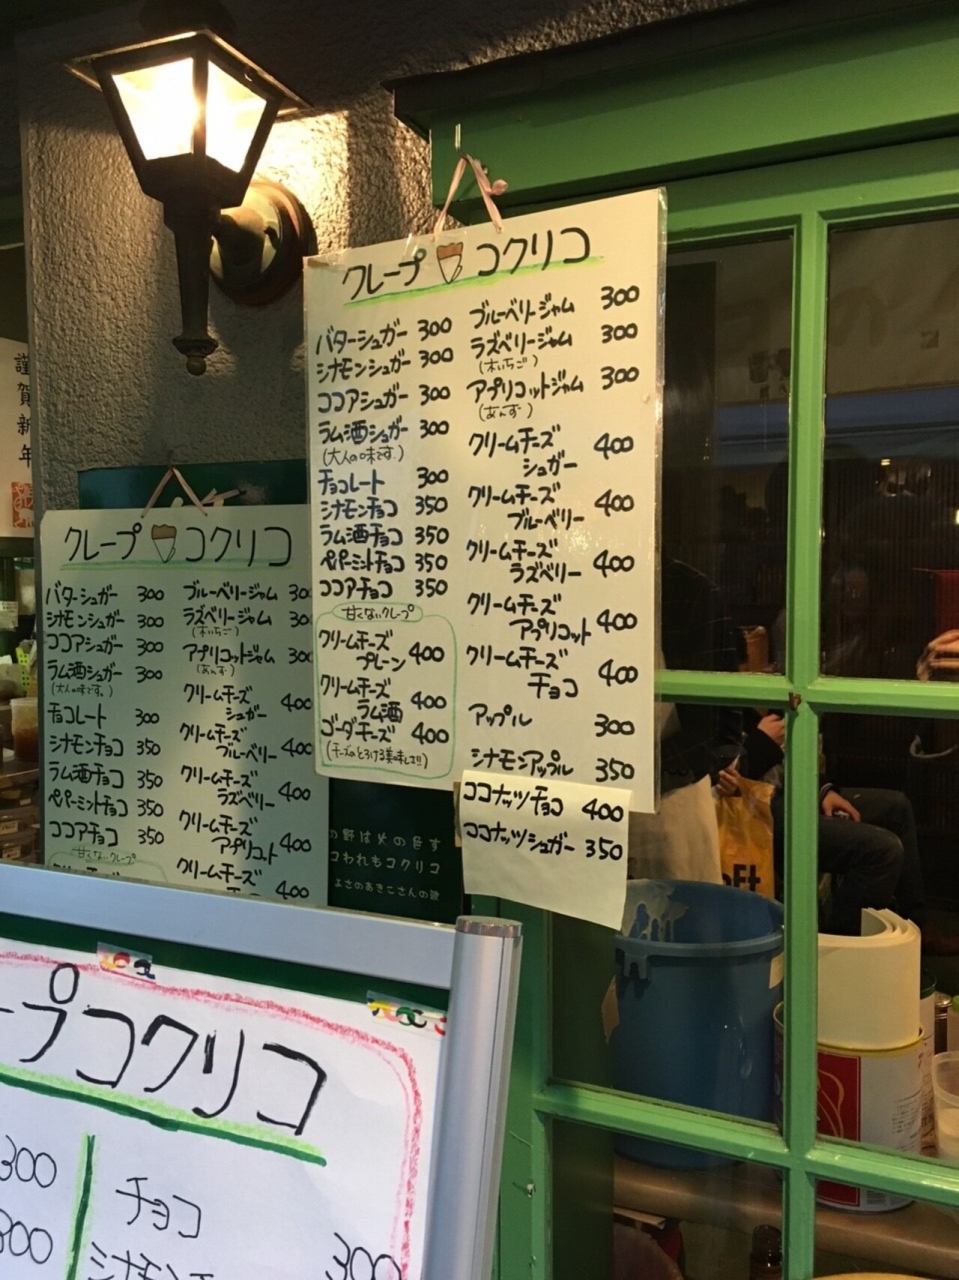 クレープ コクリコ
バターシュガー 300
シナモンシュガー 300
ココアシュガー 300
ラム酒シュガー 300
(大人の味です。)
チョコレート 300
シナモンチョコ 350
ラム酒チョコ 350
ペパーミントチョコ 350
ココアチョコ 350
甘くないクレープ
クリームチーズ
プレーン 400
クリームチーズ
ラム酒 400
ゴーダチーズ 400
(チーズのとろける美味して!!)
ブルーベリージャム 300
ラズベリージャム 300
(木いちご)
アプリコットジャム 300
(あんず)
クリームチーズ
シュガー 400
クリームチーズ
ブルーベリー 400
クリームチーズ
ラズベリー 400
クリームチーズ
アプリコット 400
クリームチーズ
チョコ 400
アップル 300
シナモンアップル 350
ココナッツチョコ 400
ココナッツシュガー 350
謹賀新年
クレープ コクリコ
バターシュガー 300
シナモンシュガー 300
ココアシュガー 300
ラム酒シュガー 300
(大人の味です。)
チョコレート 300
シナモンチョコ 350
ラム酒チョコ 350
ペパーミントチョコ 350
ココアチョコ 350
甘くないクレープ
ブルーベリージャム 30
ラズベリージャム 30
(木いちご)
アプリコットジャム 300
(あんず)
クリームチーズ
シュガー 400
クリームチーズ
ブルーベリー 400
クリームチーズ
ラズベリー 400
クリームチーズ
アプリコット 400
クリームチーズ
400
の野は火の色す
コわれもコクリコ
よさのあきこさんの歌
ープコクリコ
300
300
チョコ
シナモンチ
300